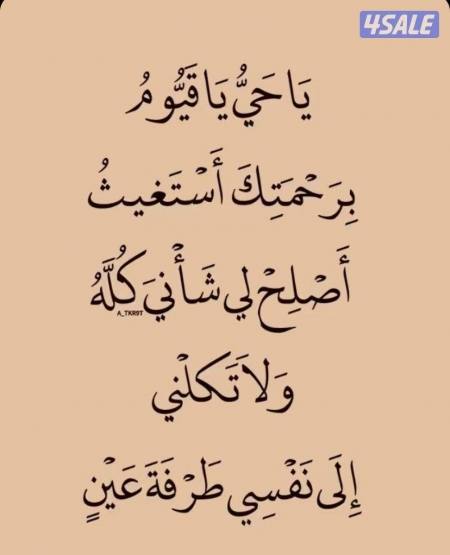 4SALE
يَا حَيُّ يَا قَيُّومُ
بِرَحْمَتِكَ أَسْتَغيثُ
أَصْلِحْ لي شَأْنيَ كُلَّهُ
A_TKR9T
وَلاَ تَكلْني
إِلَى نَفْسِي طَرْفَةَ عَيْنٍ